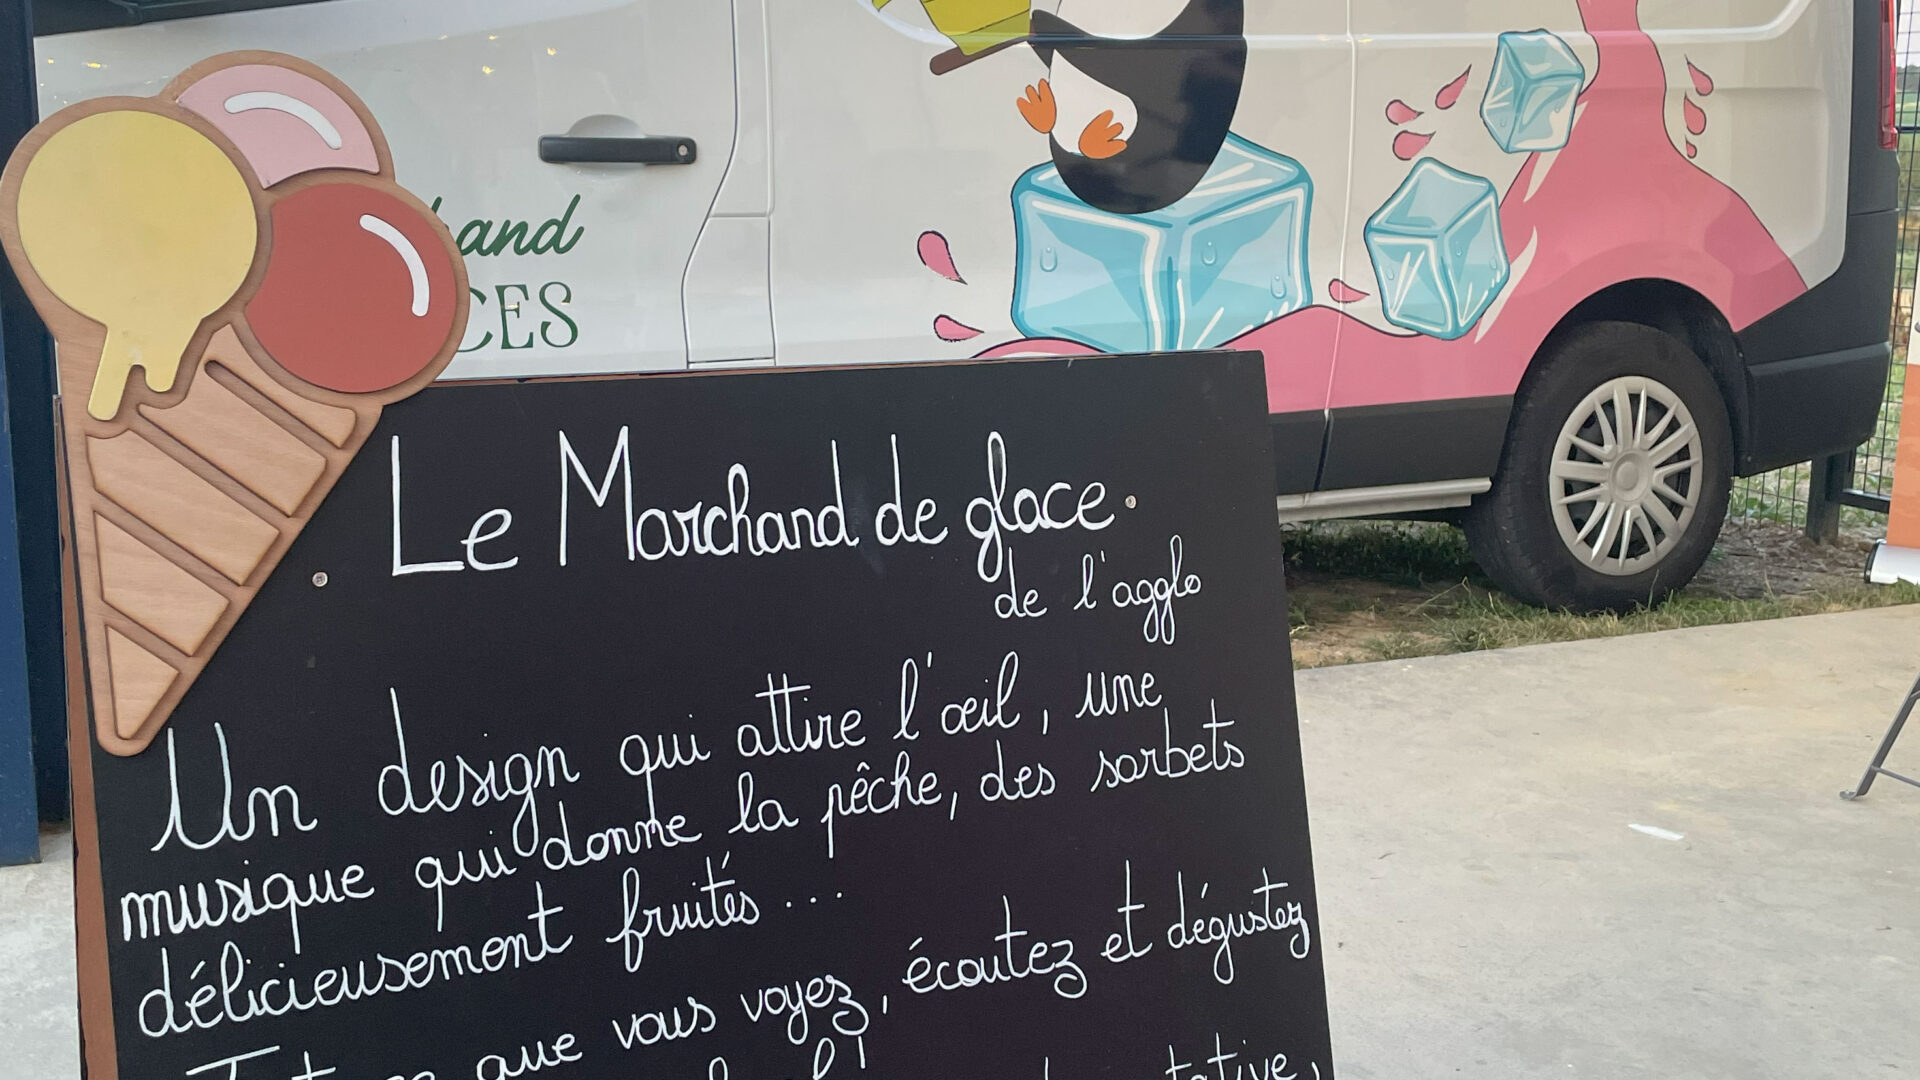 and
CES
Le Marchand de glace.
de l'agglo
Un design qui attire l'œil, une
musique qui donne la pêche, des sorbets
délicieusement fruités ...
que vous voyez, écoutez et dégustez